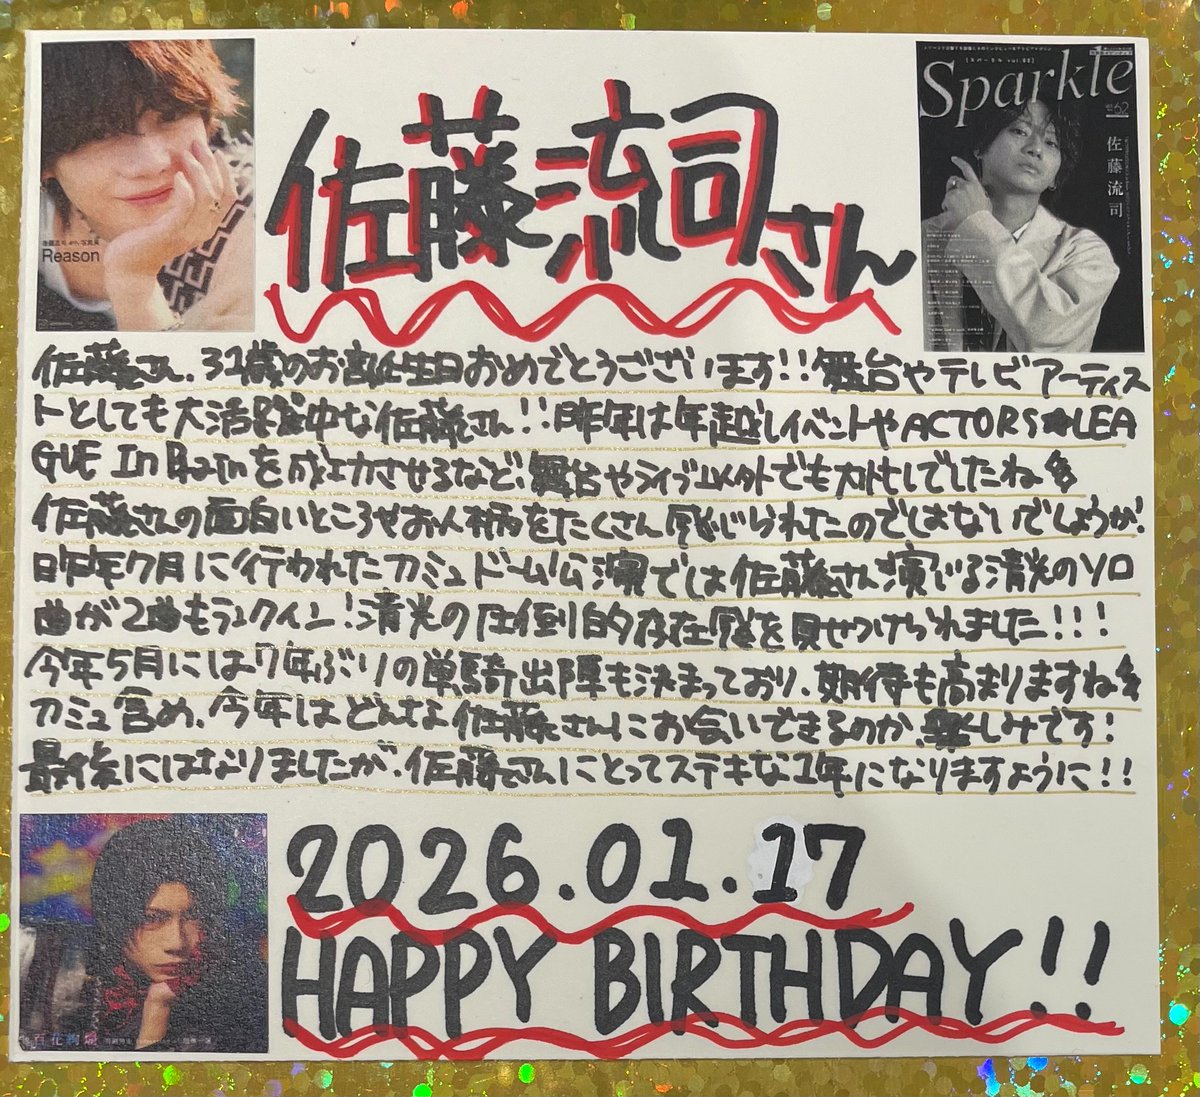 佐藤流司さん
Reason
Sparkle
佐藤流司
佐藤さん、31歳のお誕生日おめでとうございます!!舞台やテレビアーティス
トとしても大活躍中な佐藤さん!!昨年は年越しイベントやACTORS☆LEA
GUE In Batmを成功させるなど、舞台やライブ以外でも大忙しでしたね
佐藤さんの面白いところやお人柄をたくさん感じられたのではないでしょうか!
昨年7月に行われたカミュドーム公演では佐藤さん演じる清光のソロ
曲が2曲もランクイン!清光の圧倒的存在感を見せつけられました!!!
今年5月には7年ぶりの単騎出陣も決まっており、期待も高まりますね
カミュ含め、今年はどんな佐藤さんにお会いできるのか、楽しみです!
最後にはなりましたが、佐藤さんにとってステキな1年になりますように!!
2026.01.17
HAPPY BIRTHDAY!!